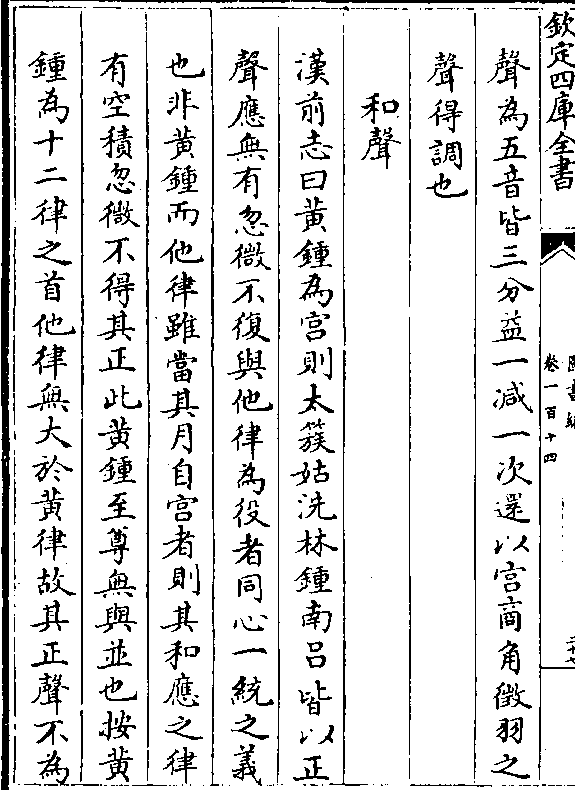 欽定四庫全書
圖書編
卷一百十四
聲為五音皆三分益一減一次選以宮商角徵羽之
聲得調也
和聲
漢前志曰黄鍾為宮則太簇姑洗林鍾南呂皆以正
聲應無有忽微不復與他律為役者同心一統之義
也非黄鍾而他律雖當其月自宮者則其和應之律
有空積忽微不得其正此黄鍾至尊無與並也按黄
鍾為十二律之首他律無大於黄律故其正聲不為